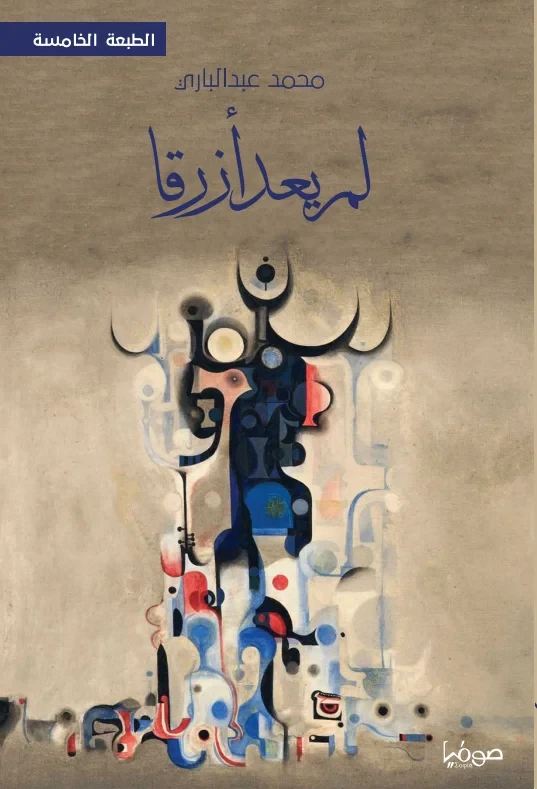 الطبعة الخامسة
محمد عبدالباري
لم يعد أزرقا
صوفيا
Σοφία